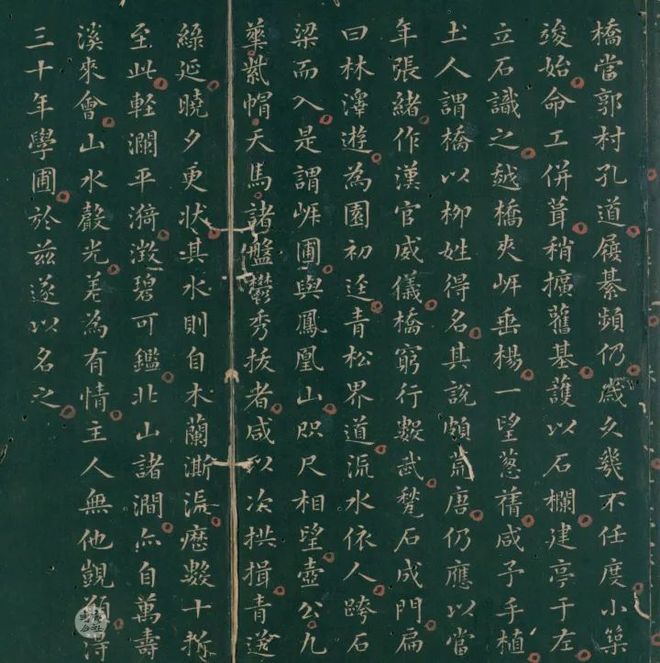 橋當郭村孔道屐綦頻仍歲久幾不任度小築
竣始命工併葺稍擴舊基護以石欄建亭于左
立石識之越橋夾岸垂楊一望蔥蒨咸予手植
土人謂橋以柳姓得名其說頗荒唐仍應以當
年張緒作漢官威儀橋窮行數武甃石成門扁
曰林澤遊為園初逕青松界道流水依人跨石
梁而入是謂岸圃與鳳凰山咫尺相望壺公九
華紫帽天馬諸盤鬱秀拔者咸以次拱揖青逶
綠延曉夕更狀其水則自木蘭澌流歷數十折
至此輕瀾平漪澂碧可鑑北山諸澗亦自萬壽
溪來會山水聲光差為有情主人無他覬願得
三十年學圃於茲遂以名之